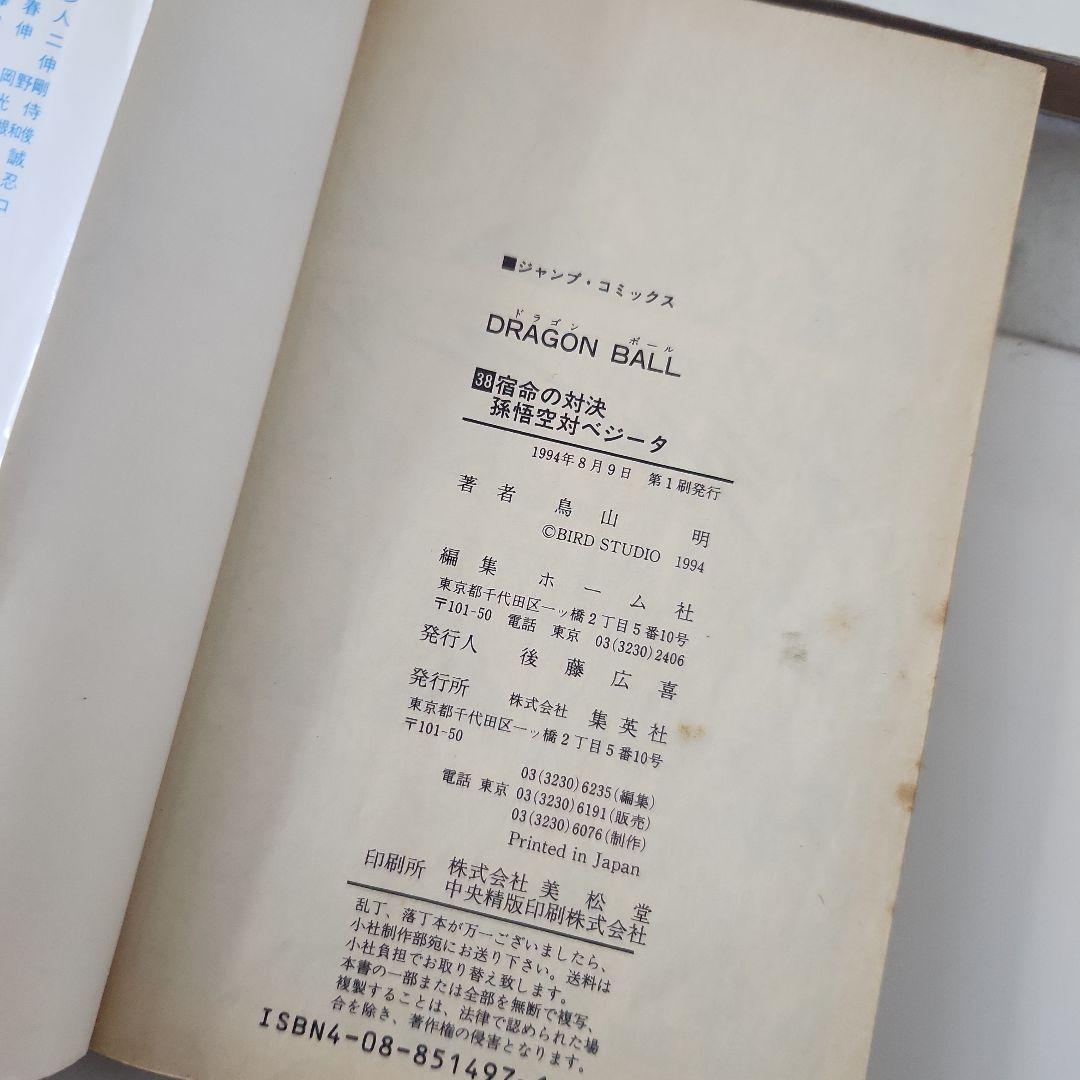 春
人
伸
二
伸
岡野剛
光
侍
和俊
誠
忍
■ジャンプ・コミックス
ドラゴン ボール
DRAGON BALL
38 宿命の対決
孫悟空対ベジータ
1994年8月9日 第1刷発行
著者 鳥山 明
©BIRD STUDIO 1994
編集 ホーム社
東京都千代田区一ッ橋2丁目5番10号
〒101-50 電話 東京 03(3230)2406
発行人 後藤広喜
発行所 株式会社 集英社
東京都千代田区一ッ橋2丁目5番10号
〒101-50
03(3230)6235(編集)
電話 東京 03(3230)6191(販売)
03(3230)6076(制作)
Printed in Japan
印刷所 株式会社 美松堂
中央精版印刷株式会社
乱丁、落丁本が万一ございましたら、
小社制作部宛にお送り下さい。送料は
小社負担でお取り替え致します。
本書の一部または全部を無断で複写、
複製することは、法律で認められた場
合を除き、著作権の侵害となります。
ISBN4-08-851497-